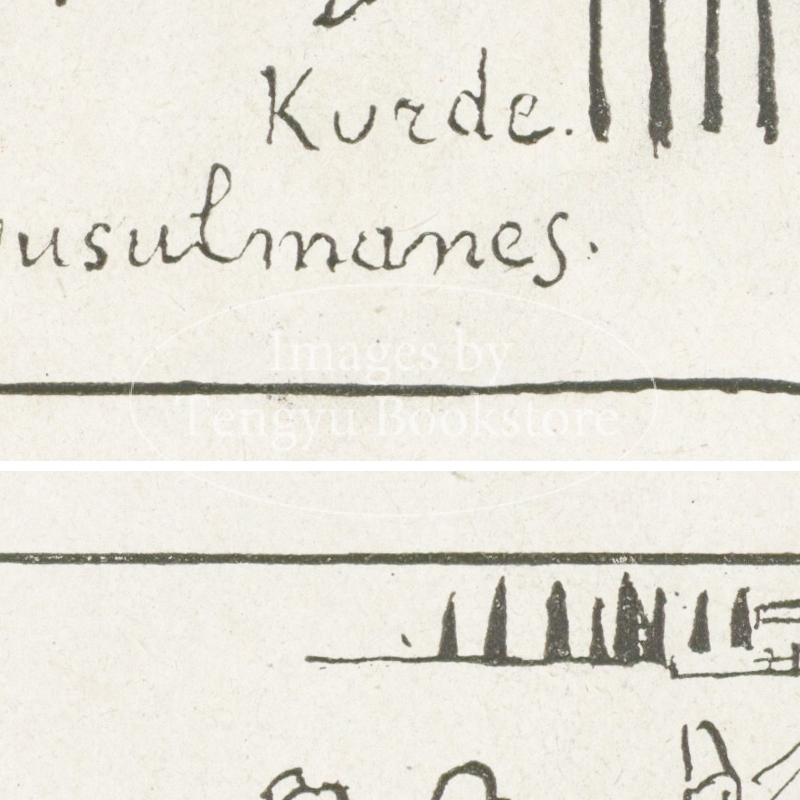 Kurde.
usulmanes.
Images by
Tengyu Bookstore